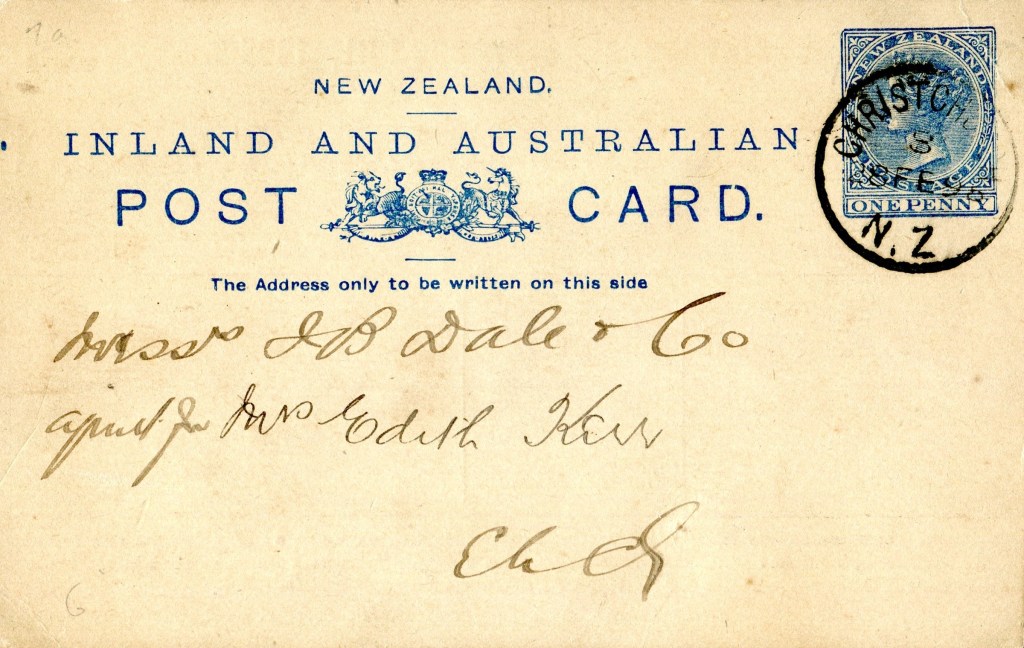 NEW ZEALAND.
INLAND AND AUSTRALIAN
POST CARD.
The Address only to be written on this side
NEW ZEALAND
ONE PENNY
CHRISTCHU
S
FE
N.Z
Messrs J B Dale & Co
agent for Mrs Edith Kerr
Ch Ch
6